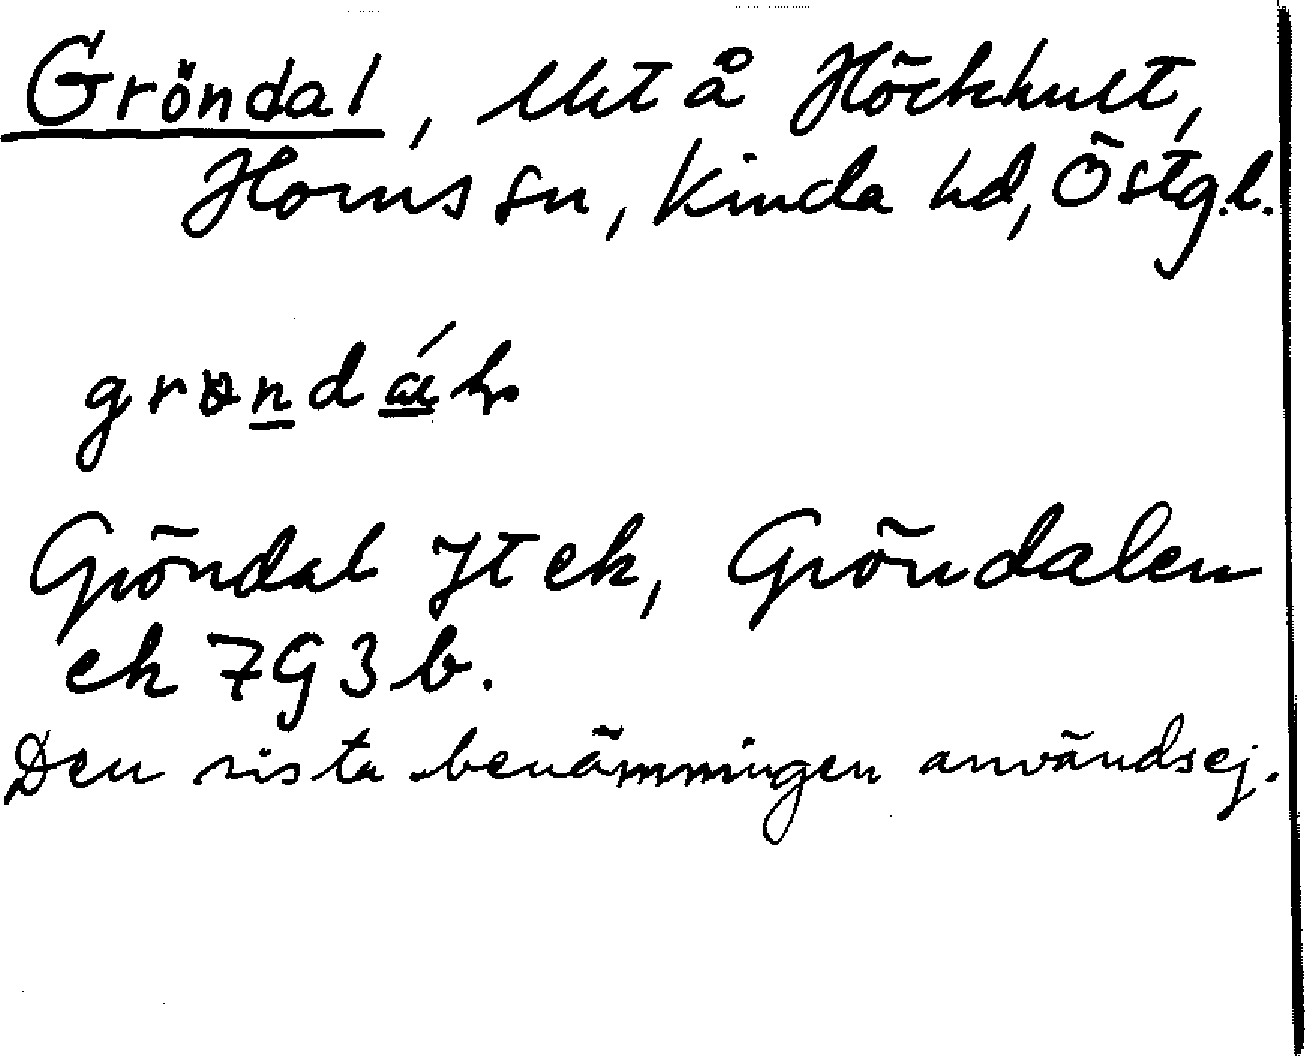 Gröndal, lht å Höckhult,
Horns sn, Kinda hd, Östg.l.
grøndál
Gröndal Jt ek, Gröndalen
ek 7G3b.
Den sista benämningen användsej.